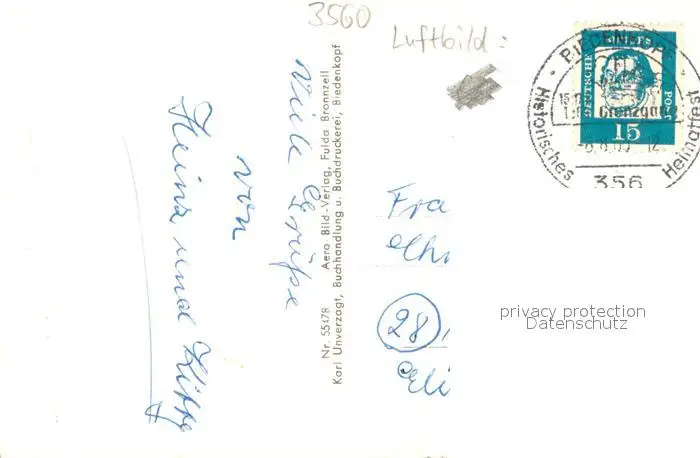 3560
Luftbild:
Viele Grüße
von
Heinz und
Nr. 55178 Aero Bild-Verlag, Fulda Bronnzell
Karl Unverzagt, Buchhandlung u. Buchdruckerei, Biedenkopf
DEUTSCHE BUNDESPOST
15
BIEDENKOPF
Grenzgang
Historisches Heimatfest
356
Fra
28
privacy protection
Datenschutz